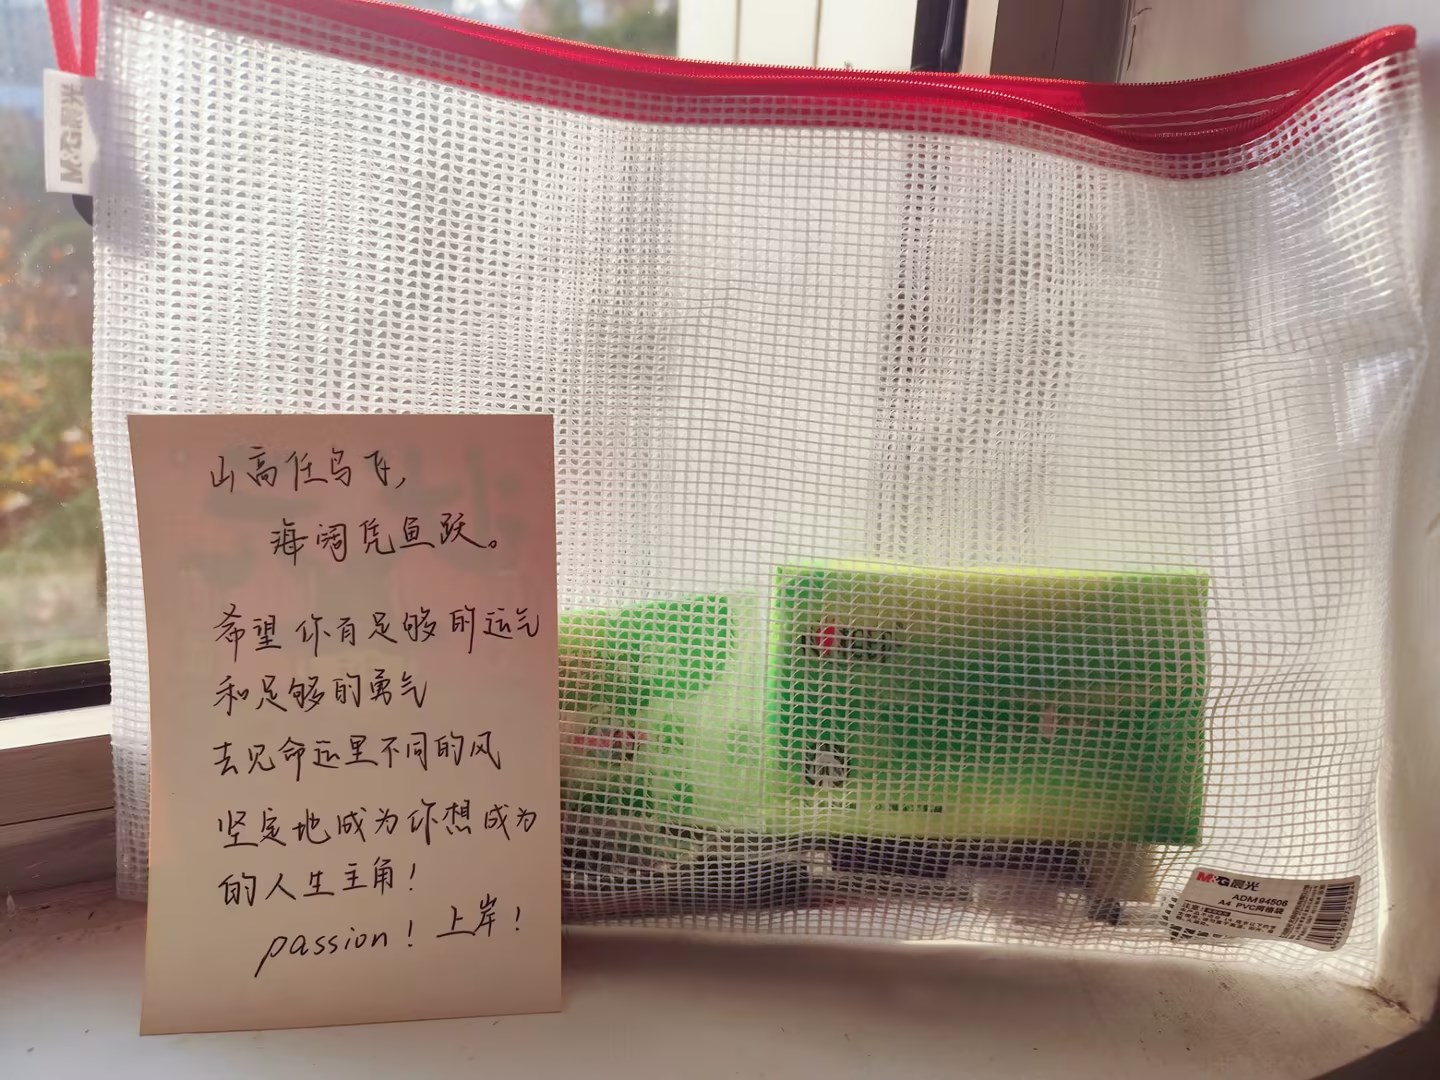 M&G晨光
山高任鸟飞，
海阔凭鱼跃。
希望你有足够的运气
和足够的勇气
去见命运里不同的风
坚定地成为你想成为
的人生主角！
passion！上岸！
M&G晨光
ADM94506
A4 PVC网格袋